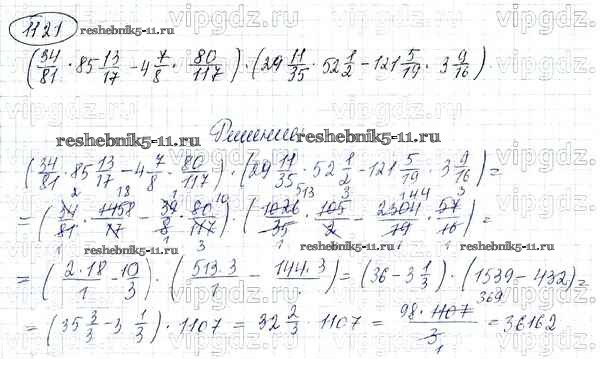 1121 reshebnik5-11.ru
(34/81 · 85 13/17 − 4 7/8 · 80/117) · (29 11/35 · 52 1/2 − 121 5/19 · 3 9/16).
reshebnik5-11.ru Решение reshebnik5-11.ru
(34/81 · 85 13/17 − 4 7/8 · 80/117) · (29 11/35 · 52 1/2 − 121 5/19 · 3 9/16) =
= (34/81 · 1458/17 − 39/8 · 80/117) · (1026/35 · 105/2 − 2304/19 · 57/16) =
reshebnik5-11.ru
= (2·18/1 − 10/3) · (513·3/1 − 144·3/1) = (36 − 3 1/3) · (1539 − 432) =
= (35 3/3 − 3 1/3) · 1107 = 32 2/3 · 1107 = 98·1107/3 = 36162
reshebnik5-11.ru
vipgdz.ru